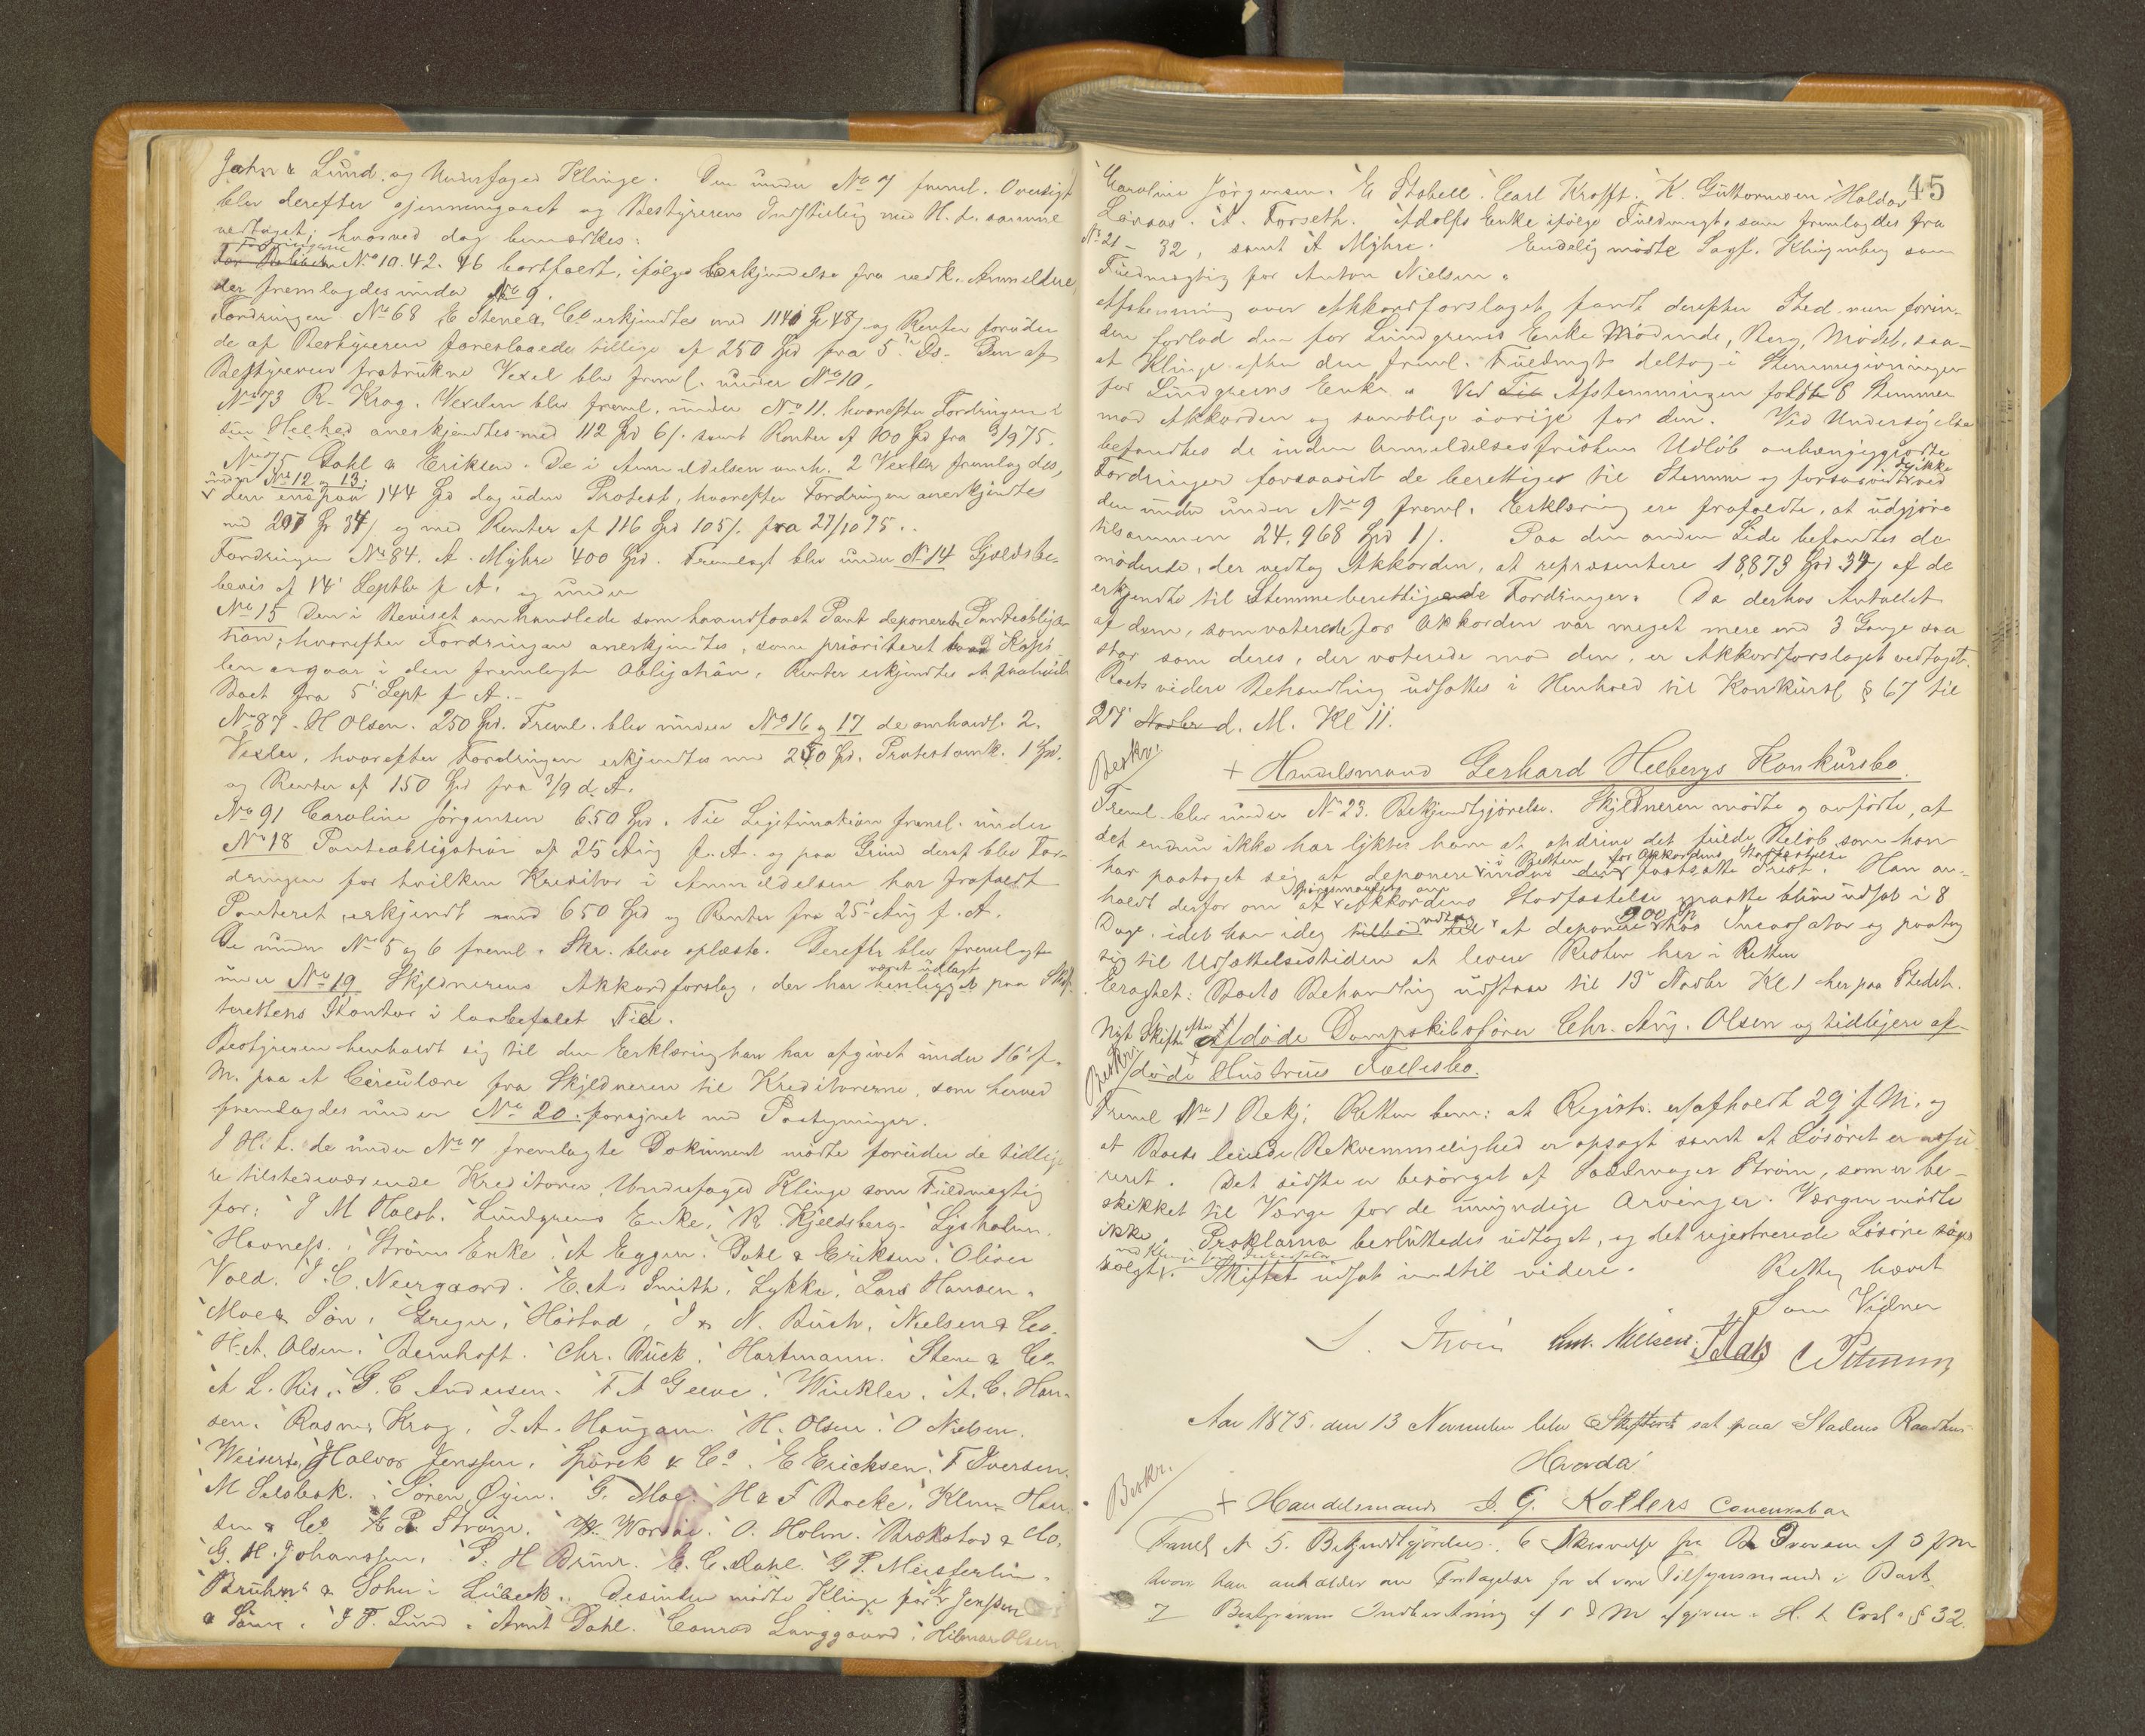 Jahn & Lund, og Undersaged Klinge. Den under No 7 freml. Oversigt
blev derefter gjennemgaaet og Bestyrerens Indstilling med H. t. samme
vedtaget; hvorved dog bemærkes:
Fordringerne
No 10. 42. 46 bortfaldt, ifølge Erkjendelse fra vedk. Anmeldere,
der fremlagdes under No 9.
Fordringen No 68 E Stene & Co erkjendtes med 1140 Spd 48 og Renter foruden
de af Bestyreren foreslaaede tillige af 250 Spd fra 5 Ds. Den af
Bestyreren fratrukne Vexel blev freml. under No 10.
No 73 R. Krog. Vexlen blev freml. under No 11. hvorefter Fordringen i
sin Helhed anerkjendtes med 112 Spd 6 samt Renter af 100 Spd fra 3/9 75.
No 75 Dahl & Eriksen. De i Anmeldelsen omh. 2 Vexler fremlagdes,
under No 12 og 13;
den ene paa 144 Spd dog uden Protest, hvorefter Fordringen anerkjendtes
med 207 Sp 34 og med Renter af 116 Spd 105 fra 27/10 75.
Fordringen No 84. A. Myhre 400 Spd. Fremlagt blev under No 14 Gjeldsbe-
bevis af 14 Septbr f. A. og under
No 15 Den i Beviset omhandlede som haandfaaet Pant deponerede Panteobliga-
tion; hvorefter Fordringen anerkjendtes, som prioriteret
i den fremlagte Obligation. Renter erkjendtes at paahvile
Boet fra 5 Sept f. A.
No 87. H Olsen. 250 Spd. Freml. blev under No 16 og 17 de omhandl. 2.
Vexler, hvorefter Fordringen erkjendtes med 250 Spd. Protestomk. 1 Spd.
og Renter af 150 Spd fra 3/9 d. A.
No 91 Caroline Jørgensen 650 Spd. Til Legitimation freml. under
No 18 Panteobligation af 25 Aug f. A. og paa Grund deraf blev For-
dringen for hvilken Kreditor i Anmeldelsen har frafaldt
Panteret erkjendt med 650 Spd og Renter fra 25 Aug f. A.
De under No 5 og 6 freml. Skr. bleve oplæste. Derefter blev fremlagt
været udlagt
under No 19 Skyldnerens Akkordforslag, der har henligget paa Skif-
terettens Kontor i lovbefalet Tid.
Bestyreren henholdt sig til den Erklæring han har afgivet under 16 f.
M. paa et Circulære fra Skyldneren til Kreditorerne, som herved
fremlagdes under No 20. forsynet med Paategninger.
I H. t. de under No 7 fremlagte Dokument mødte foruden de tidlige-
re tilstedeværende Kreditorer, Undersaged Klinge som Fuldmægtig
for: J M Halseth. Lundgrens Enke, R. Kjeldsberg. Lysholm
Havness. Strøms Enke. A Eggen. Dahl & Eriksen. Oliver
Vold. J. C. Neergaard. E. A. Smith. Lykke, Lars Hansen.
Moe & Søn, Greger, Høstad, J & N. Buch, Nielsen & Co.
H. A. Olsen. Bernhoft. Chr. Buck. Hartmann. Stene & Co.
A L. Ris. G. C Andersen. F A Greve. Winkler. A. C. Han-
sen. Rasmus Krog, J. A. Haugan. H. Olsen. O Nielsen.
Halvor Jenssen. Spørck & Co. E Ericksen. F Iversen.
M Selsbak. Søren Øyen. G. Moe. H & F Bocke. Klem Han-
sen & Co E L Strøm. W. O. Holm. Brækstad & Co.
G. H. Johanssen. S. H Bruun. E. C. Dahl. G P. Meisterlin.
Bruhns & Sohn i Lübeck. Desuden mødte Klinge for Jenssen
& Sønn. J F. Lund. Arnt Dahl. Conrad Langgaard. Hilmar Olsen
45
Caroline Jørgensen. E Stabell. Carl Krafft. K. Guttormsen. Haldor
Lønaas. A. Forseth. Adolfs Enke ifølge Fuldmagt, som fremlagdes fra
No 21 - 32, samt A Myhre. Endelig mødte Sagf. Klingenberg som
Fuldmægtig for Anton Nielsen.
Afstemning over Akkordforslaget fandt derefter Sted. men forin-
den forlod den for Lundgrens Enke Mødende, Berg, Mødet, saa-
at Klinge efter den freml. Fuldmagt deltog i Stemmegivningen
for Lundgrens Enke. Ved Afstemningen faldt 8 Stemmer
mod Akkorden og samtlige øvrige for den. Ved Undersøgelse
befandtes de inden Anmeldelsesfristens Udløb anhængiggjorte
de ikke
Fordringer forsaavidt de berettiger til Stemme og forsaavidt ved
den under No 9 freml. Erklæring ere frafaldte, at udgjøre
tilsammen 24.968 Spd 1. Paa den anden Side befandtes de
mødende, der vedtog Akkorden, at repræsentere 18,873 Spd 34 af de
erkjendte til Stemmeberettigede Fordringer. Da derhos Antallet
af dem, som voterede for Akkorden var meget mere end 3 Gange saa
stor som deres, der voterede mod den, er Akkordforslaget vedtaget.
Boets videre Behandling udsattes i Henhold til Konkursl § 67 til
27 Novbr d. M. Kl 11.
Beskr.
+ Handelsmand Gerhard Heebergs Konkursbo.
Freml. blev under No 23. Bekjendtgjørelse. Skyldneren mødte og anførte, at
det endnu ikke har lykkes ham at opdrive det fulde Beløb, som han
i Retten for Akkordens Stadfæstelse
har paataget sig at deponere inden den fastsatte Frist. Han an-
Spørgsmaalet om
holdt derfor om at Akkordens Stadfæstelse maatte blive udsat i 8
vedtog 900 Sp
Dage, idet han idag tilbød at deponere hos Incassator og paatog
sig til Udsættelsestiden at levere Resten her i Retten
Eragtet: Boets Behandling udstaar til 15 Novbr Kl 1 her paa Stedet.
Nyt Skifte efter afdøde Dampskibsfører Chr. Aug. Olsen og tidligere af-
Beskr.
døde Hustrues Fællesbo.
Freml No 1 Bekj. Retten bem: at Registr. er afholdt 29 f. M. og
at Boets leiede Bekvemmelighed er opsagt samt at Løsøret er assu-
reret. Det sidste er besørget af Sadelmager Strøm, som er be-
skikket til Værge for de umyndige Arvinger. Værgen mødte
ikke. Proklama besluttedes udtaget, og det registrerede Løsøre
med Klinge som Incassator
solgt. Skiftet udsat indtil videre. Retten hævet
Som Vidner
Ant. Nielsen.
Aar 1875. den 13 November blev Skifteret sat paa Stadens Raadhus
Hvorda
Beskr.
+ Handelsmand J. G. Kollers Concursbo
Freml No 5. Bekjendtgjørelse. 6 Skrivelse fra B Iversen af 5 f M
hvori han anholder om Fritagelse for at være Tilsynsmand i Boet.
7 Bestyrerens Indberetning af 1 d M afgiven i H. t. Concl. § 32.